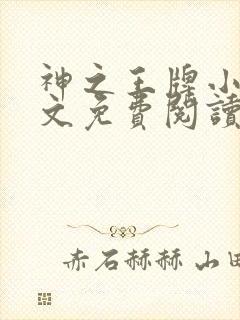 神之王牌小
文免費閱讀
赤石赫赫 山田